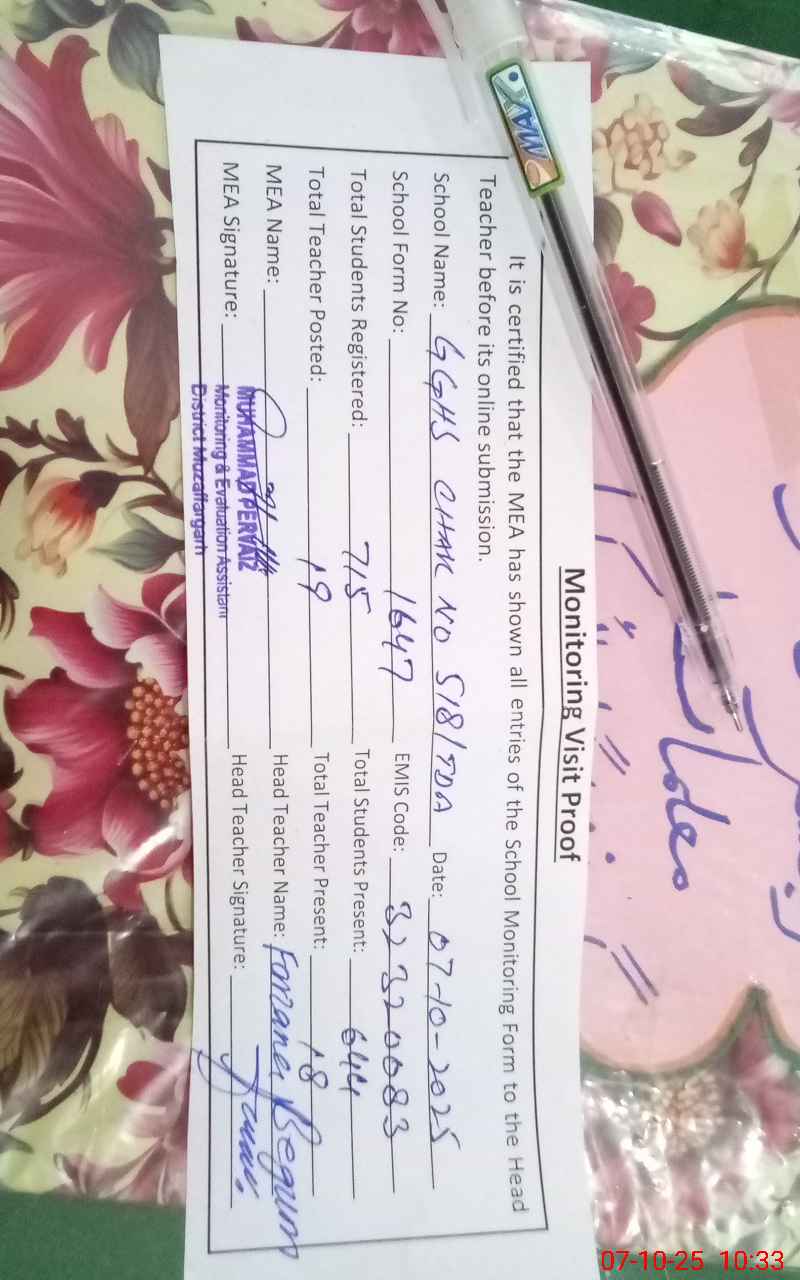 Monitoring Visit Proof
It is certified that the MEA has shown all entries of the School Monitoring Form to the Head
Teacher before its online submission.
School Name: GGHS CHAK NO 518/TDA Date: 07-10-2025
School Form No: 1647 EMIS Code: 32320083
Total Students Registered: 715 Total Students Present: 644
Total Teacher Posted: 19 Total Teacher Present: 18
MEA Name: Head Teacher Name: Farzana Begum
MEA Signature: Head Teacher Signature:
MUHAMMAD PERVAIZ
Monitoring & Evaluation Assistant
District Muzaffargarh
MAX
07-10-25 10:33